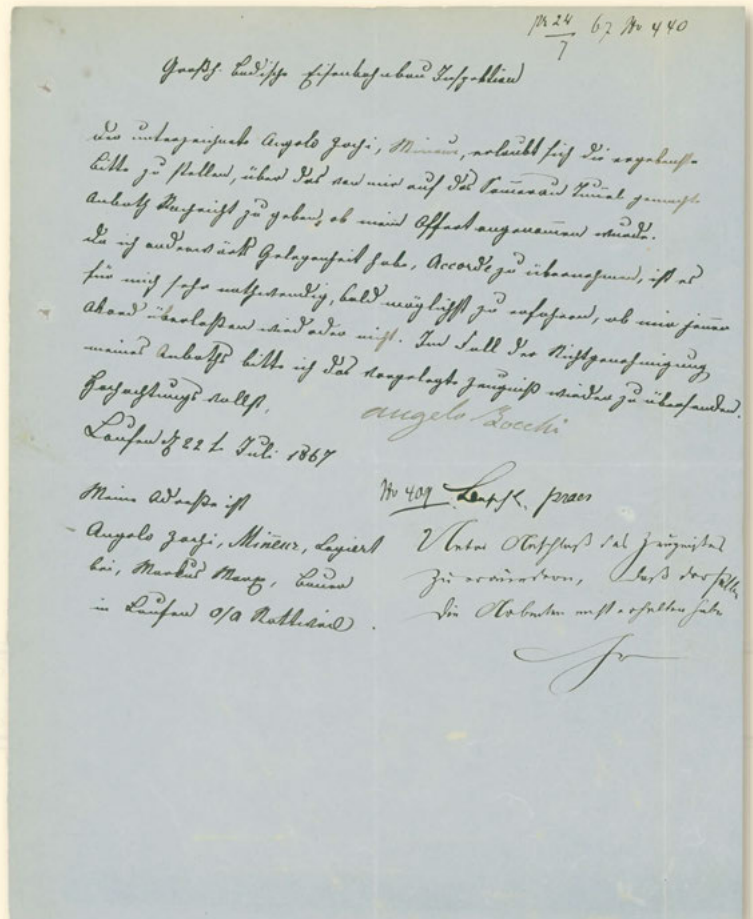 pr 24/7 67 No 440
Großh. Badische Eisenbahnbau Inspektion
Der unterzeichnete Angelo Zochi, Mineur, erlaubt sich die ergebenste
Bitte zu stellen, über das von mir auf das Sommerau Tunnel gemachte
Anboth Nachricht zu geben, ob mein Offert angenommen wurde.
Da ich anderwärts Gelegenheit habe, Accorde zu übernehmen, ist es
für mich sehr nothwendig, bald möglichst zu erfahren, ob mir jener
Akord überlaßen wird oder nicht. Im Fall der Nichtgenehmigung
meines Anboths bitte ich das vorgelegte Zeugniß wieder zu übersenden.
Hochachtungsvollst,
angelo Zocchi
Laufen d 22t Juli 1867
Meine Adreße ist
Angelo Zochi, Mineur, Logiert
bei, Markus Marx, Bauer
in Laufen O/A Rottweil.
No 409 Beschl. praes
Unter Anschluß des Zeugnisses
zu erwiedern, daß derselbe
die Arbeiten nicht erhalten habe